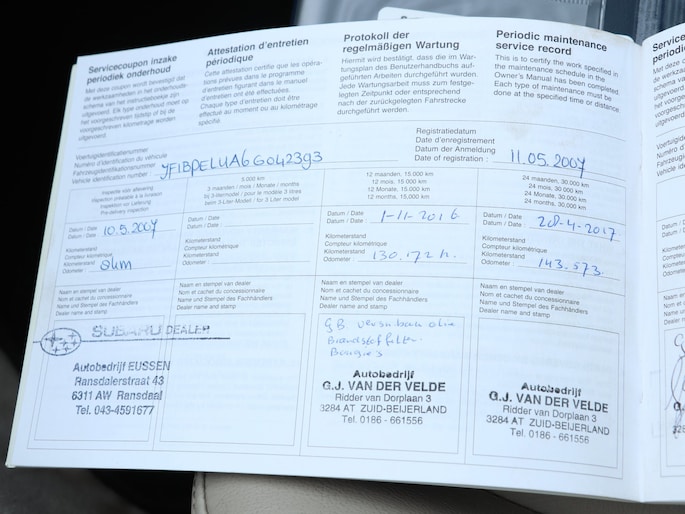 Servicecoupon inzake
periodiek onderhoud
Met deze coupon wordt bevestigd dat
de werkzaamheden in het onderhouds-
schema van het instructieboekje zijn
uitgevoerd. Elk type onderhoud moet op
het voorgeschreven tijdstip of bij de
voorgeschreven kilometrage worden
uitgevoerd.
Attestation d'entretien
périodique
Cette attestation certifie que les opéra-
tions prévues dans le programme
d'entretien figurant dans le manuel
d'entretien ont été effectuées.
Chaque type d'entretien doit être
effectué au moment ou au kilométrage
spécifié.
Protokoll der
regelmäßigen Wartung
Hiermit wird bestätigt, dass die im War-
tungsplan des Benutzerhandbuchs auf-
geführten Arbeiten durchgeführt wurden.
Jede Wartungsarbeit muss zum festge-
legten Zeitpunkt oder entsprechend
nach der zurückgelegten Fahrstrecke
durchgeführt werden.
Periodic maintenance
service record
This is to certify the work specified in
the maintenance schedule in the
Owner's Manual has been completed.
Each type of maintenance must be
done at the specified time or distance.
Voertuigidentificatienummer
Numéro d'identification du véhicule
Fahrzeugidentifikationsnummer
Vehicle identification number : JF1BPELUA6G042393
Registratiedatum
Date d'enregistrement
Datum der Anmeldung
Date of registration : 11.05.2007
Inspectie vóór aflevering
Inspection préalable à la livraison
Inspektion vor Lieferung
Pre-delivery inspection
5.000 km
3 maanden / mois / Monate / months
bij 3-litermodel / pour le modèle 3 litres
beim 3-Liter-Modell / for 3 Liter model
12 maanden, 15.000 km
12 mois, 15.000 km
12 Monate, 15.000 km
12 months, 15.000 km
24 maanden, 30.000 km
24 mois, 30.000 km
24 Monate, 30.000 km
24 months, 30.000 km
Datum / Date
Datum / Date : 10.5.2007
Kilometerstand
Compteur kilométrique
Kilometerstand
Odometer :
Datum / Date
Datum / Date :
Kilometerstand
Compteur kilométrique
Kilometerstand
Odometer :
Datum / Date
Datum / Date : 1-11-2016
Kilometerstand
Compteur kilométrique
Kilometerstand
Odometer : 130.172
Datum / Date
Datum / Date : 20-4-2017
Kilometerstand
Compteur kilométrique
Kilometerstand
Odometer : 143.573
Naam en stempel van dealer
Nom et cachet du concessionnaire
Name und Stempel des Fachhändlers
Dealer name and stamp
SUBARU DEALER
Autobedrijf EUSSEN
Ransdalerstraat 43
6311 AW Ransdaal
Tel. 043-4591677
Naam en stempel van dealer
Nom et cachet du concessionnaire
Name und Stempel des Fachhändlers
Dealer name and stamp
Naam en stempel van dealer
Nom et cachet du concessionnaire
Name und Stempel des Fachhändlers
Dealer name and stamp
Bougie's
Autobedrijf
G.J. VAN DER VELDE
Ridder van Dorplaan 3
3284 AT ZUID-BEIJERLAND
Tel. 0186 - 661556
Naam en stempel van dealer
Nom et cachet du concessionnaire
Name und Stempel des Fachhändlers
Dealer name and stamp
Autobedrijf
G.J. VAN DER VELDE
Ridder van Dorplaan 3
3284 AT ZUID-BEIJERLAND
Tel. 0186 - 661556